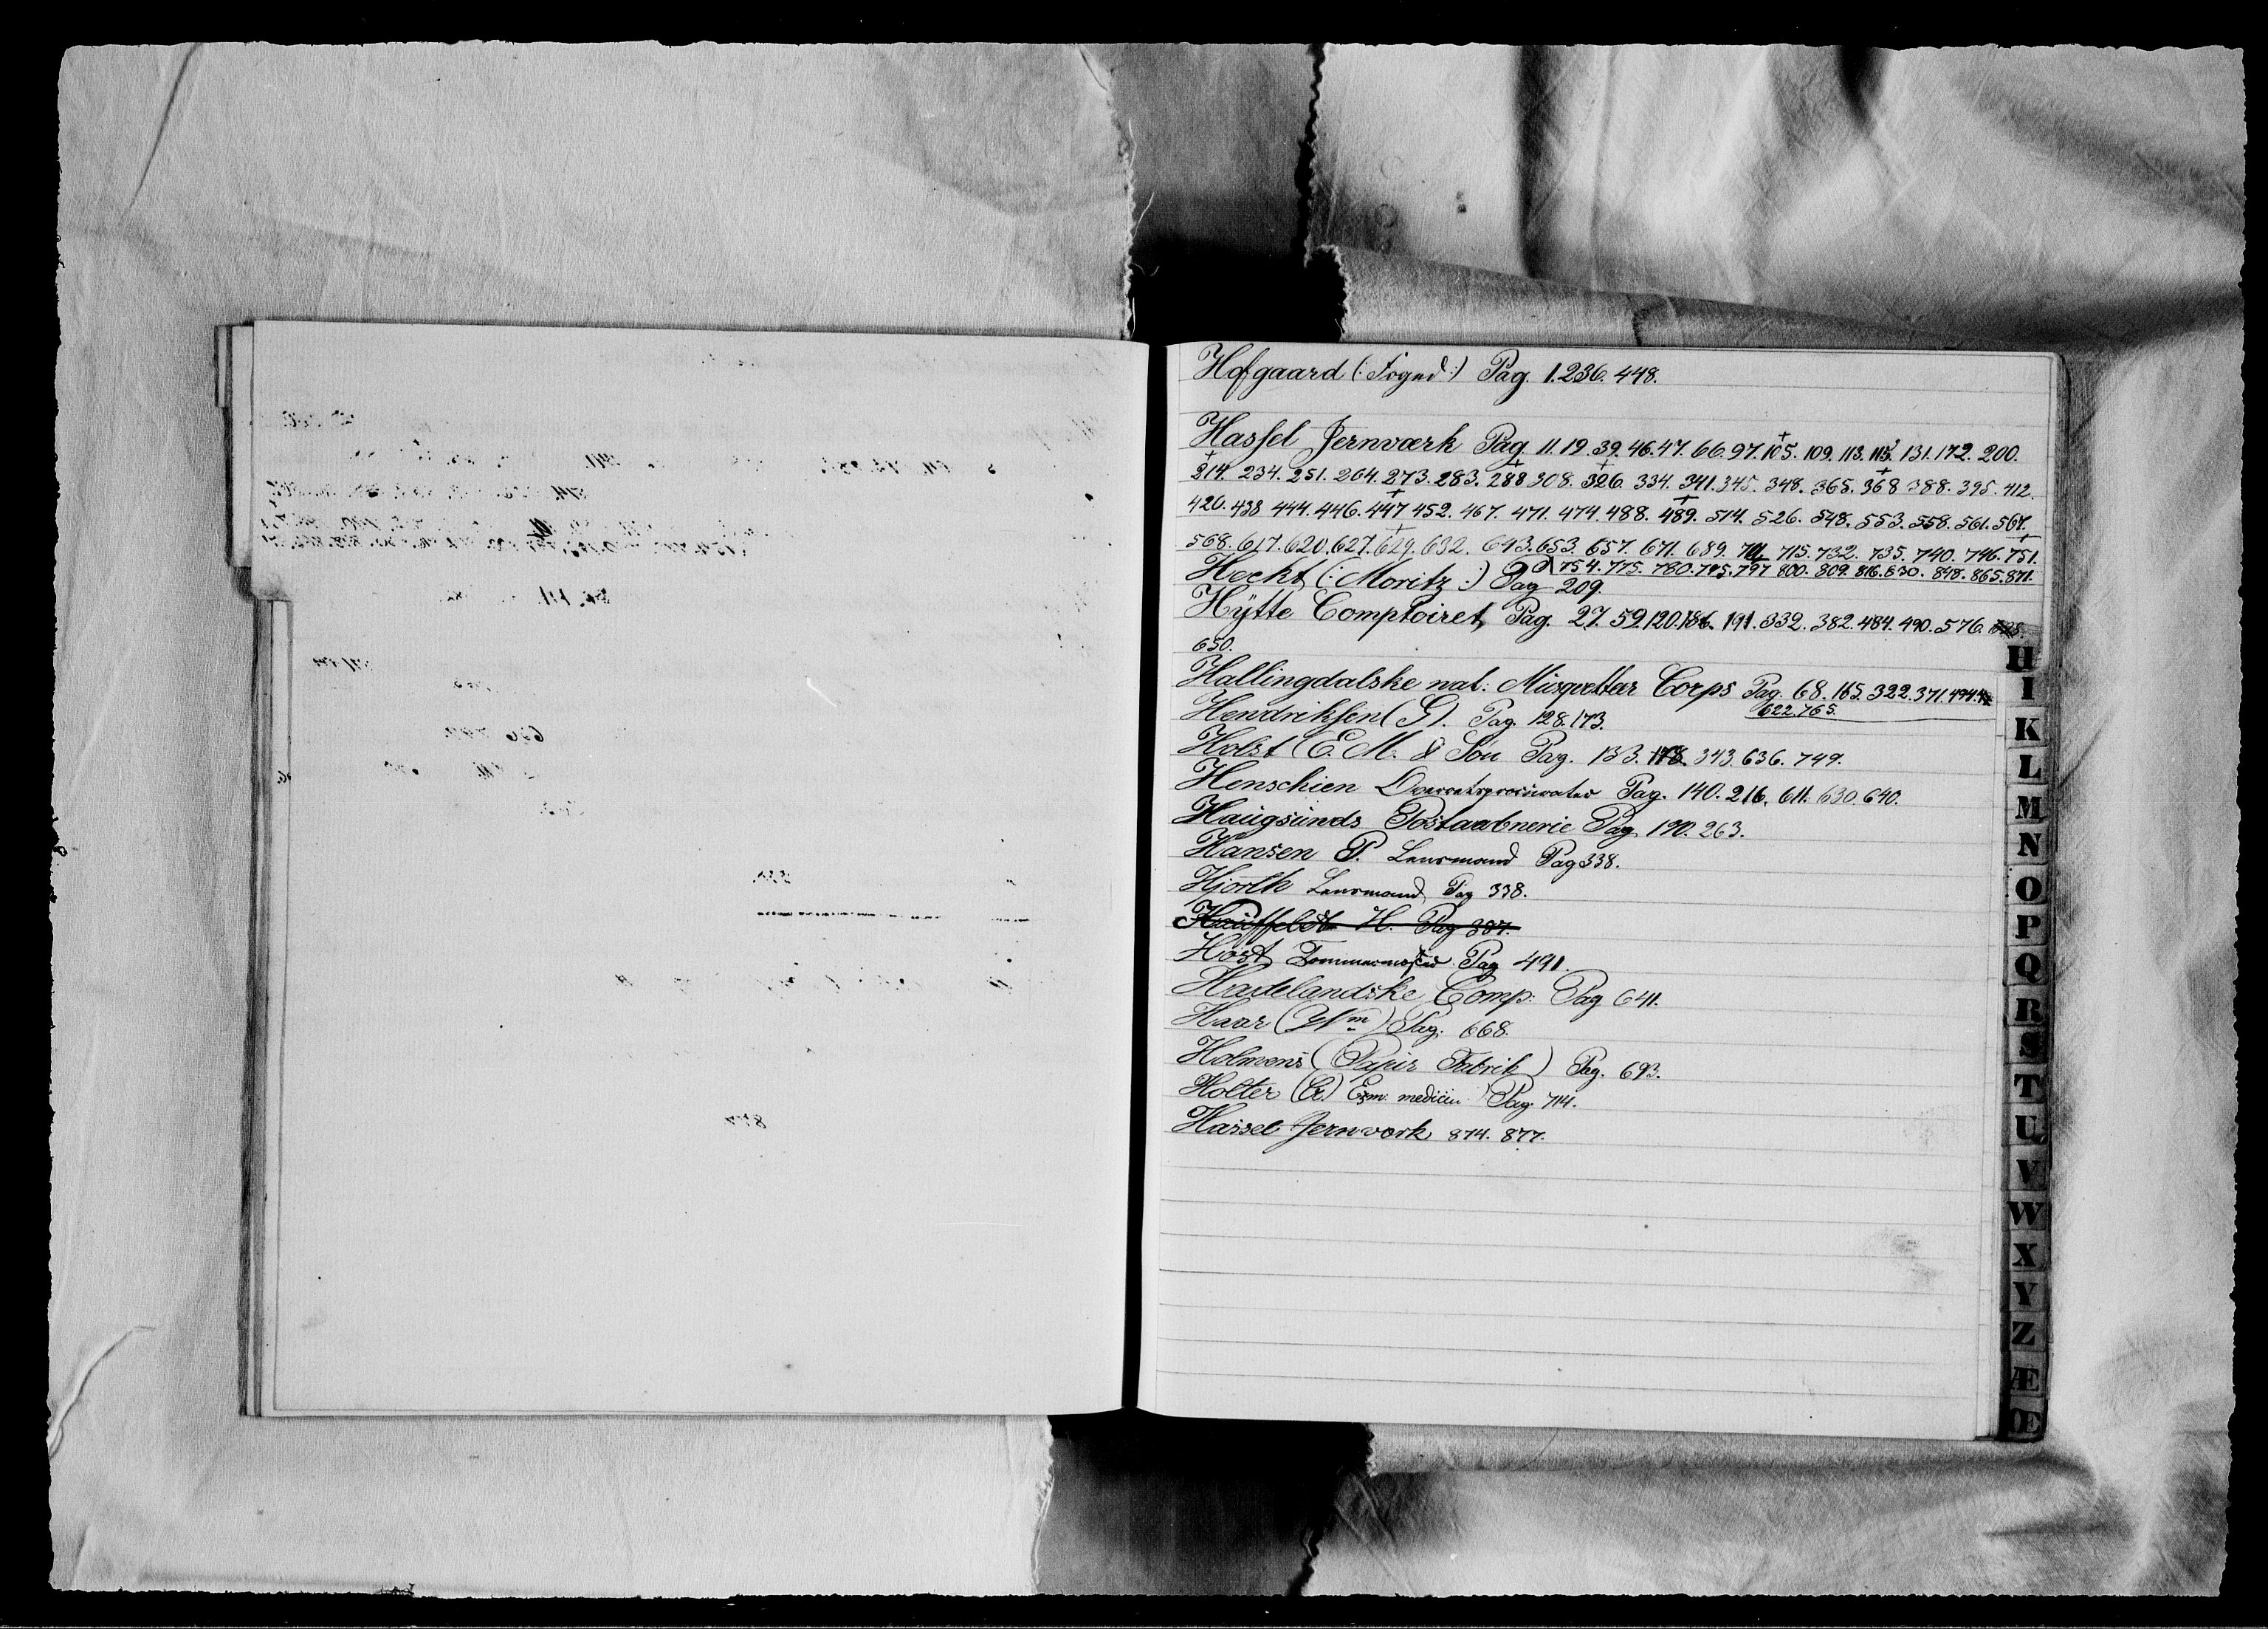 Hofgaard (: Foged :) Pag. 1. 236. 448.
Hassel Jernværk Pag. 11. 19. 39. 46. 47. 66. 97. 105. 109. 113. 115. 131. 172. 200.
214. 234. 251. 264. 273. 283. 288 308. 326. 334. 341. 345. 348. 365. 368 388. 395. 412.
420. 438 444. 446. 447 452. 467. 471. 474. 488. 489. 514. 526. 548. 553. 558. 561. 567.
568. 617. 620. 627. 629. 632. 643. 653. 657. 671. 689. 715. 732. 735. 740. 746. 751.
754. 775. 780. 795. 797 800. 809. 816. 830. 848. 865. 871.
Hecht (: Moritz :) Pag 209.
Hÿtte Comptoiret, Pag. 27. 59. 120. 186. 191. 332. 382. 484. 490. 576.
650.
Hallingdalske nat: Musquetteer Corps Pag. 68. 165. 322. 371.
622. 765.
Hendriksen (G). Pag. 128. 173.
Holst (E. M. & Søn Pag. 133. 178. 343. 636. 749.
Henschien Overretsprocurator Pag. 140. 216. 611. 630. 640.
Haugsunds Postaabnerie Pag. 190. 263.
Hansen P. Lensmand Pag 338.
Hjorth Lensmand Pag 338.
Hauffeldt H. Pag 387.
Høst Tømmermester Pag 491.
Hadelandske Comp: Pag 641.
Haar (Wm) Pag. 668.
Holmens (Papir Fabrik) Pag. 693.
Holter (Cr.) Exm: medicin Pag. 714.
Hassel Jernværk 874. 877.
H
I
K
L
M
N
O
P
Q
R
S
T
U
V
W
X
Y
Z
Æ
Œ